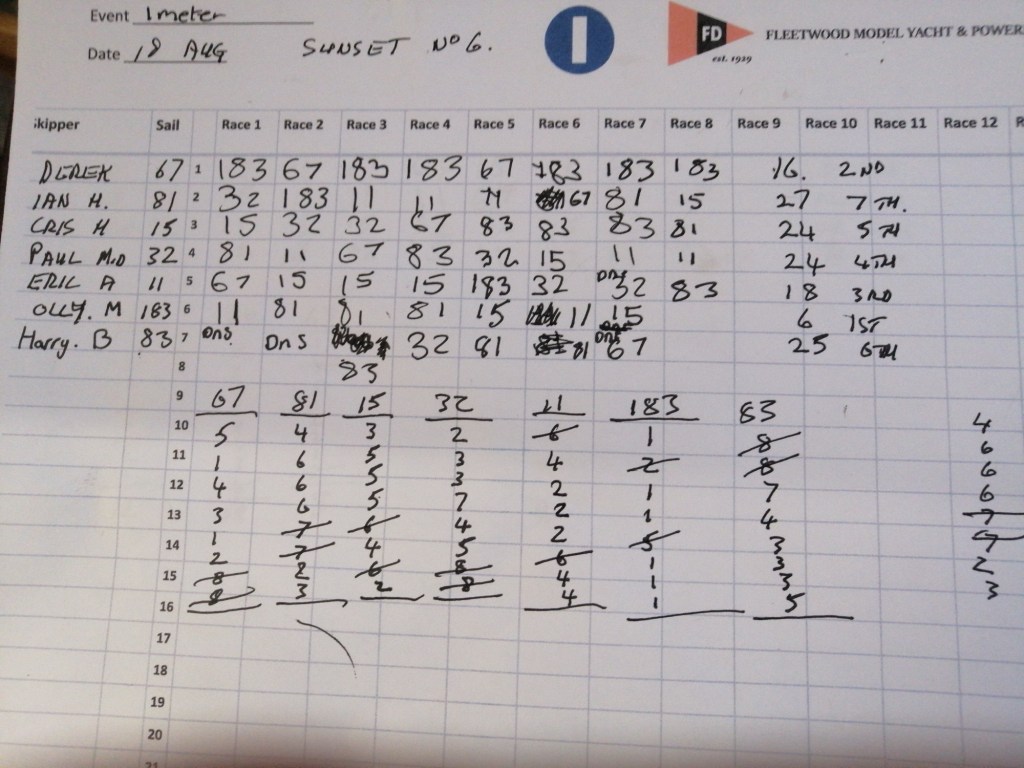 Event 1 meter
Date 18 AUG SUNSET No 6.
FD
est. 1929
FLEETWOOD MODEL YACHT & POWER
Skipper Sail Race 1 Race 2 Race 3 Race 4 Race 5 Race 6 Race 7 Race 8 Race 9 Race 10 Race 11 Race 12 R
DEREK 67 1 183 67 183 183 67 183 183 183 16. 2ND
IAN H. 81 2 32 183 11 11 11 67 81 15 27 7TH.
CRIS H 15 3 15 32 32 67 83 83 83 81 24 5TH
PAUL M.D 32 4 81 11 67 83 32 15 11 11 24 4TH
ERIC A 11 5 67 15 15 15 183 32 Dns 32 83 18 3RD
OLLY. M 183 6 11 81 81 81 15 11 15 6 1ST
Harry. B 83 7 Dns Dns 32 81 81 Dns 67 25 6TH
8 83
9 67 81 15 32 11 183 83
10 5 4 3 2 6 1 8 4
11 1 6 5 3 4 2 8 6
12 4 6 5 3 2 1 7 6
13 3 6 5 7 2 1 4 6
1 7 6 4 2 5 3 7
14 2 7 4 5 6 1 3 7
15 8 2 6 8 4 1 3 2
16 8 3 2 8 4 1 5 3
17
18
19
20
21